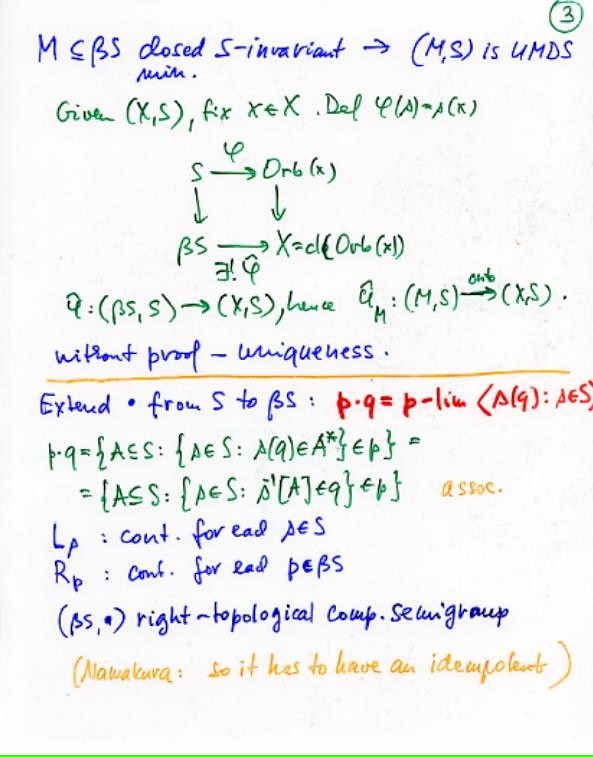 3
M ⊆ βS closed S-invariant → (M,S) is UMDS
min.
Given (X,S), fix x ∈ X. Def φ(s) = s(x)
S →φ Orb(x)
↓ ↓
βS → X = cl(Orb(x))
∃! φ̂
φ̂ : (βS, S) → (X,S), hence û_M : (M,S) →onto (X,S).
without proof – uniqueness.
Extend • from S to βS : p·q = p-lim ⟨s(q) : s∈S⟩
p·q = {A⊆S : {s∈S : s(q)∈A*} ∈ p} =
= {A⊆S : {s∈S : s⁻¹[A] ∈ q} ∈ p} assoc.
L_s : cont. for each s∈S
R_p : cont. for each p∈βS
(βS, •) right-topological comp. semigroup
(Namakura: so it has to have an idempotent.)